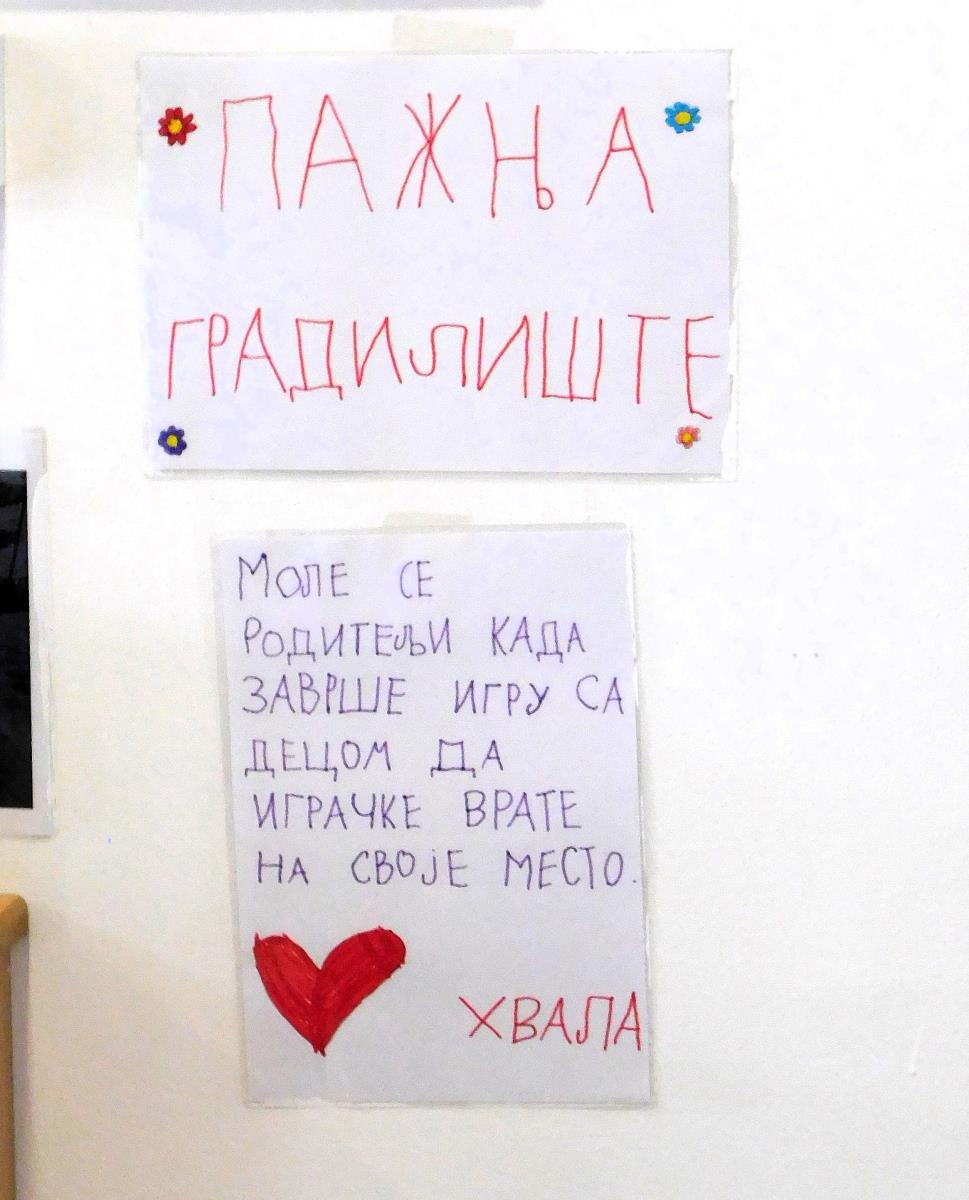 ПАЖЊА
ГРАДИЛИШТЕ
МОЛЕ СЕ
РОДИТЕЉИ КАДА
ЗАВРШЕ ИГРУ СА
ДЕЦОМ ДА
ИГРАЧКЕ ВРАТЕ
НА СВОЈЕ МЕСТО.
ХВАЛА